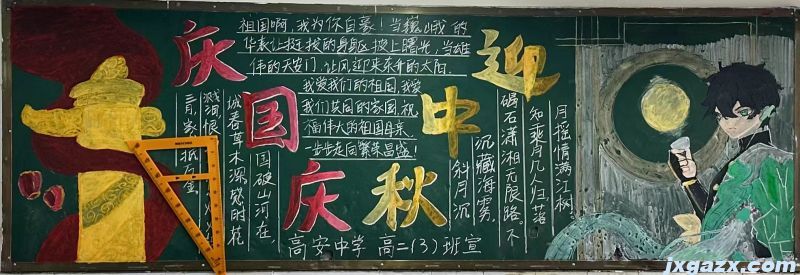 庆国庆
迎中秋
祖国啊,我为你自豪!当巍峨的
华表让挺拔的身躯披上曙光,当雄
伟的天安门,让风迎来东升的太阳.
我爱我们的祖国,我爱
我们共同的家园,祝
福伟大的祖国母亲,
一步步走向繁荣昌盛!
国破山河在,
城春草木深。感时花
溅泪,恨
家 抵万金。
斜月沉
沉藏海雾,
碣石潇湘无限路。不
知乘月几人归,落
月摇情满江树.
高安中学 高二(3)班宣
jxgazx.com